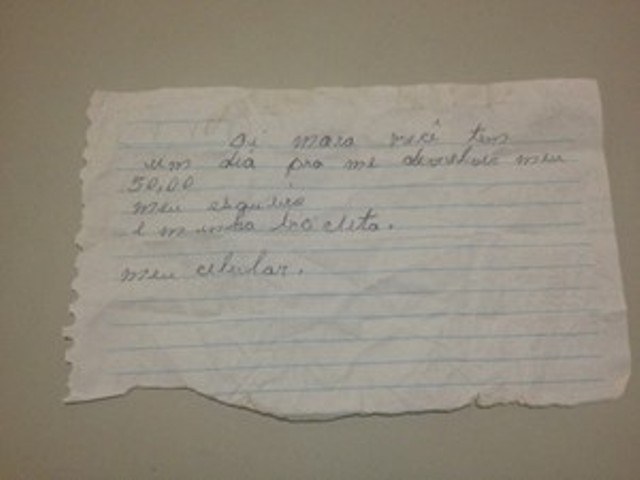 Oi mara você tem
um dia pra me devolver meu
50,00
meu esqueiro
e minha bicicleta.
meu celular.